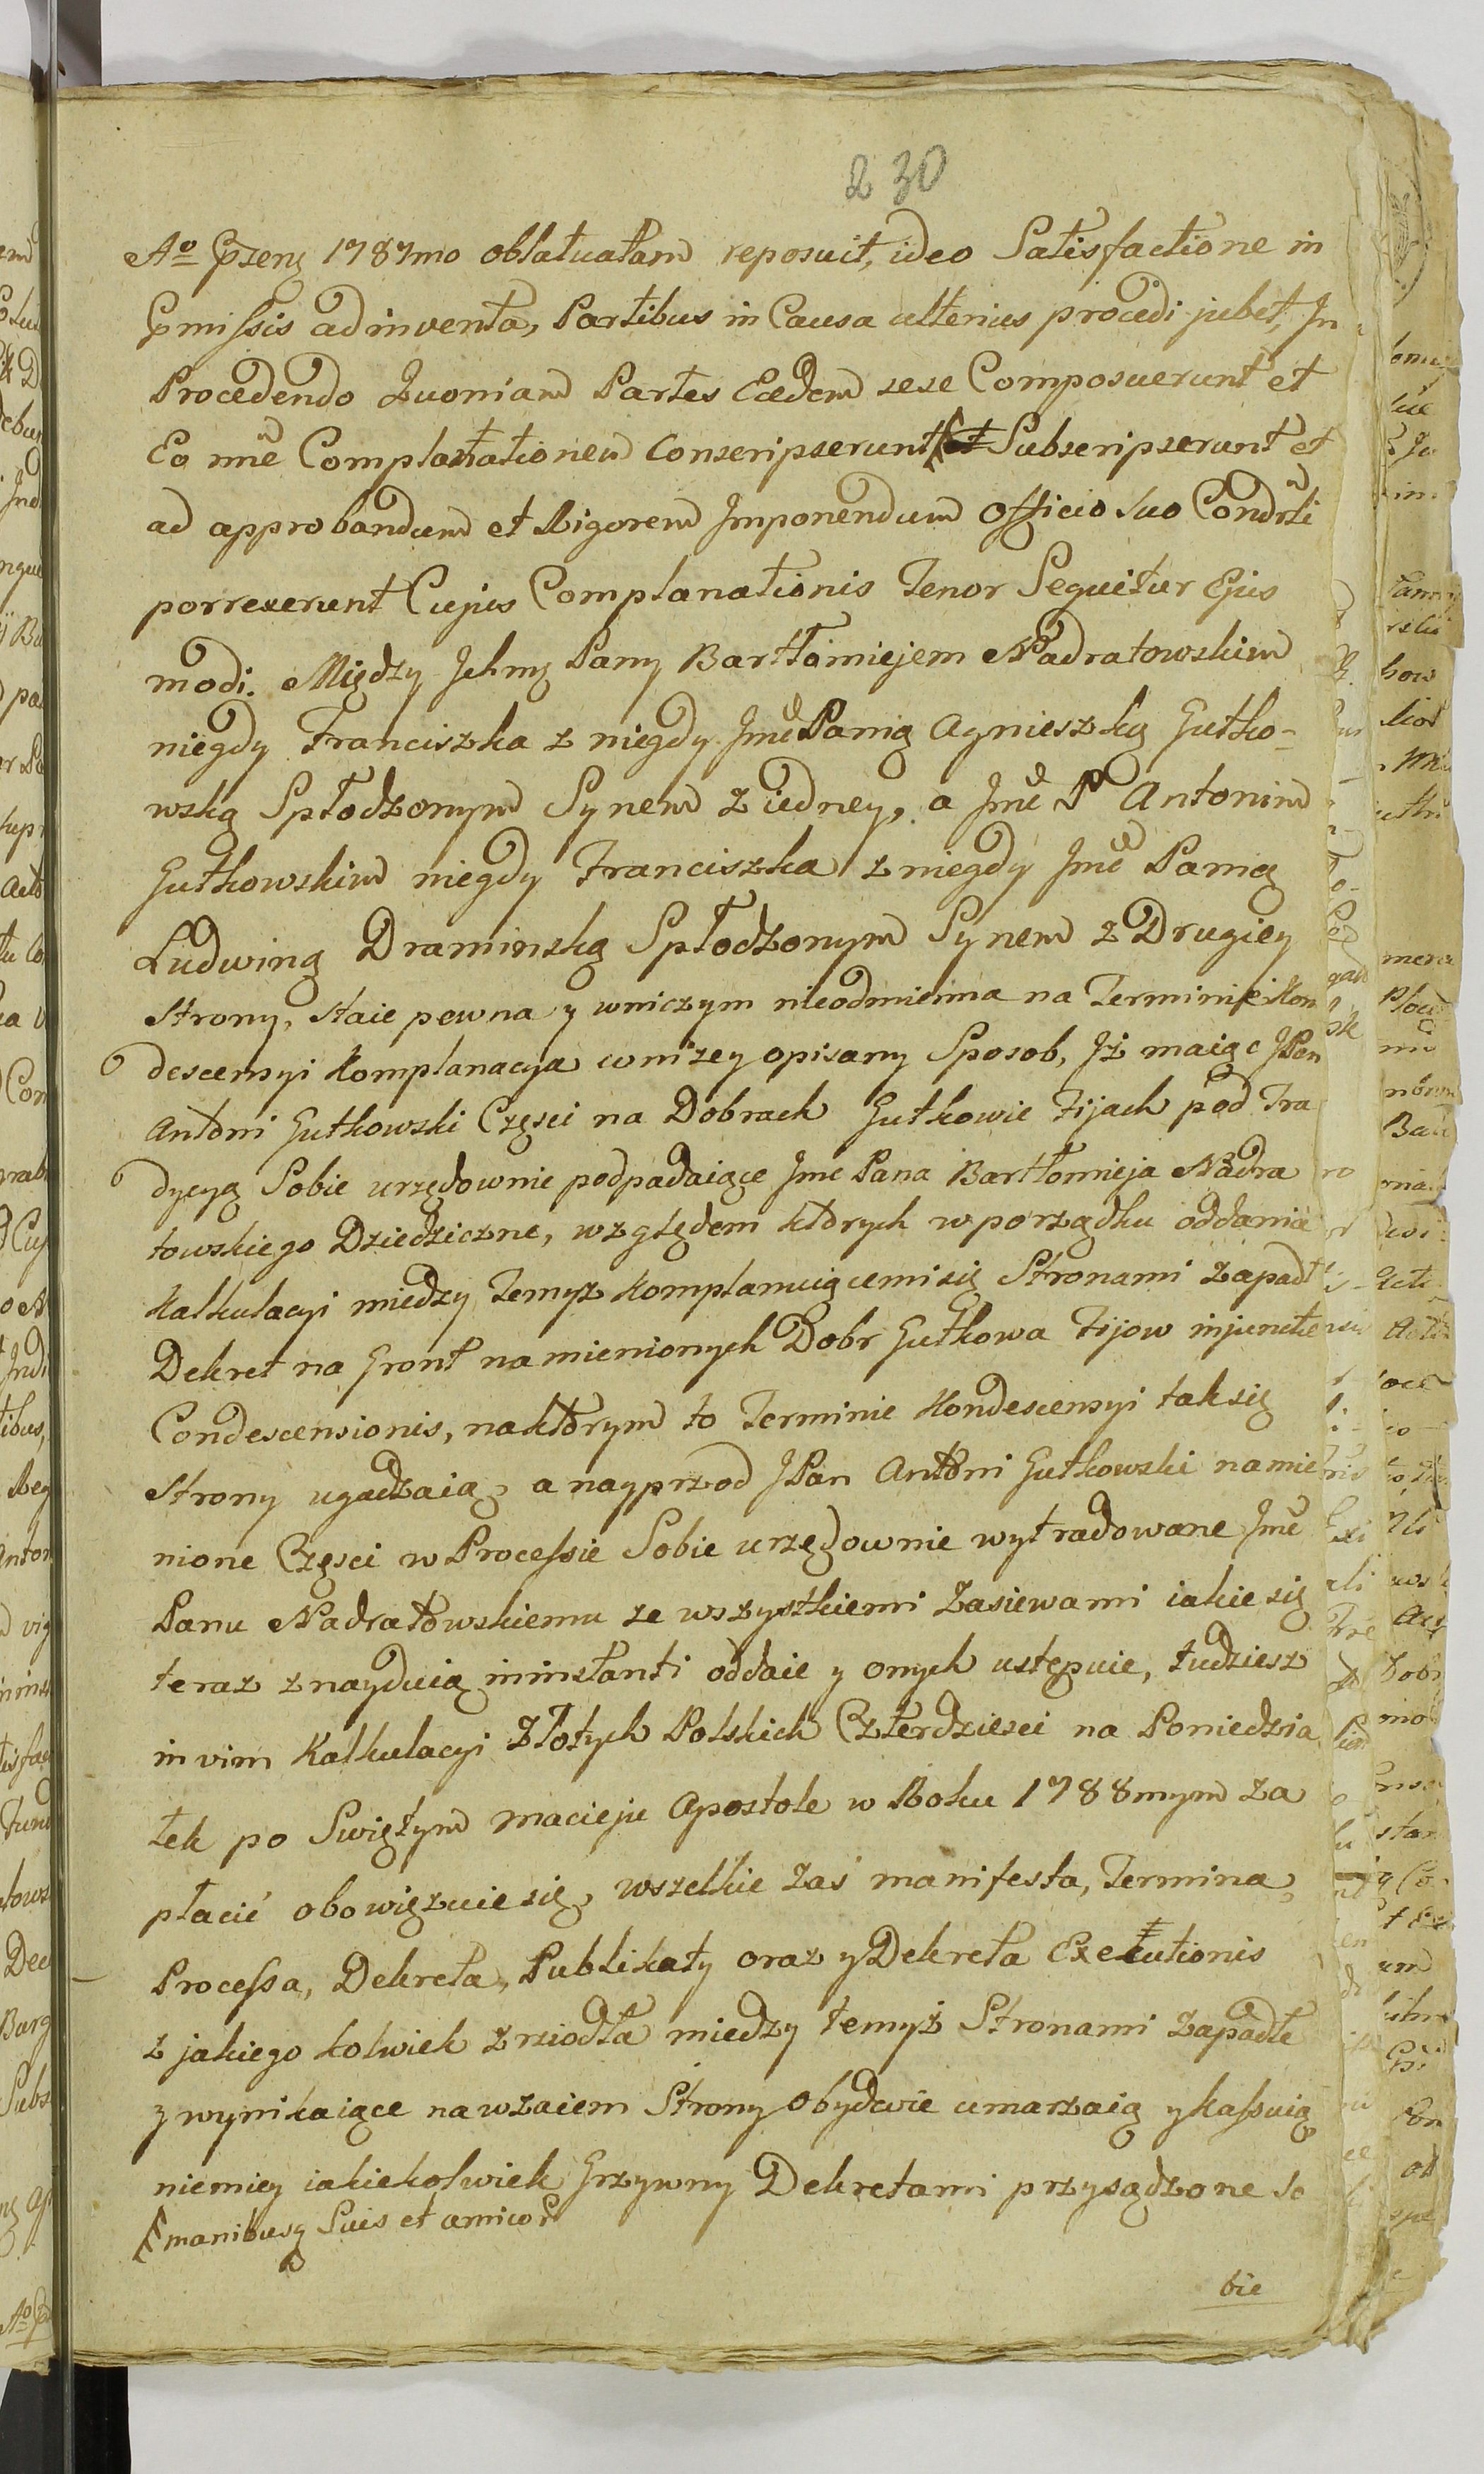 230
Ao Przenz 1787mo oblatuatam reposuit, ideo Satisfactione in
Pmissis adinventa, Partibus in Causa ulterius procedi jubet, In
Procedendo Quoniam Partes Eædem sese Composuerunt et
Eo nne Complanationem Conscripserunt Subscripserunt et
ad approbandum et Rigorem Imponendum Officio suo Condrli
porrexerunt Cujus Complanationis Tenor Sequitur Ejus
modi. Między Ichmę Pany Bartłomiejem Nadratowskim
niegdy Franciszka z niegdy Jmć Panią Agnieszką Gutko-
wską Spłodzonym Synem z iedney, a Jmć P Antonim
Gutkowskim niegdy Franciszka z niegdy Jmć Panią
Ludwiną Draminską Spłodzonym Synem z Drugiey
Strony, staie pewna y wniczym nieodmienna na Terminie Kon
descensyi Komplanacyja w niżey opisany Sposob, Iż maiąc JPan
Antoni Gutkowski Częsci na Dobrach Gutkowie Fijach pod Tra
dycyą Sobie urzędownie podpadaiące Jmc Pana Bartłomieja Nadra
towskiego Dziedziczne, względem ktorych w porządku oddania
Kalkulacyi miedzy Temyż Komplanuiącemi się Stronami zapadł
Dekret na Gront namienionych Dobr Gutkowa Fijow injuncte
Condescensionis, naktorym to Terminie Kondescensyi tak się
Strony ugadzaią, a nayprzod JPan Antoni Gutkowski namie
nione Częsci w Processie Sobie urzędownie wytradowane Jmć
Panu Nadratowskiemu ze wszystkiemi Zasiewami iakie się
teraz znayduią ininstanti oddaie y onych ustępuie, tudziesz
in vim Kalkulacyi Złotych Polskich Czterdziesci na Poniedzia
łek po Swiętym Macieju Apostole w Roku 1788mym za
płacić obowięzuie się, wszelkie zaś manifesta, Termina,
Processa, Dekreta, Publikaty oraz y Dekreta Exekutionis
z jakiego kolwiek zrziodła miedzy temyż Stronami zapadłe
y wynikaiące nawzaiem Strony obydwie umarzaią y kassuią,
niemiey iakiekolwiek Grzywny Dekretami przysądzone so
manibusq Suis et amicor
bie